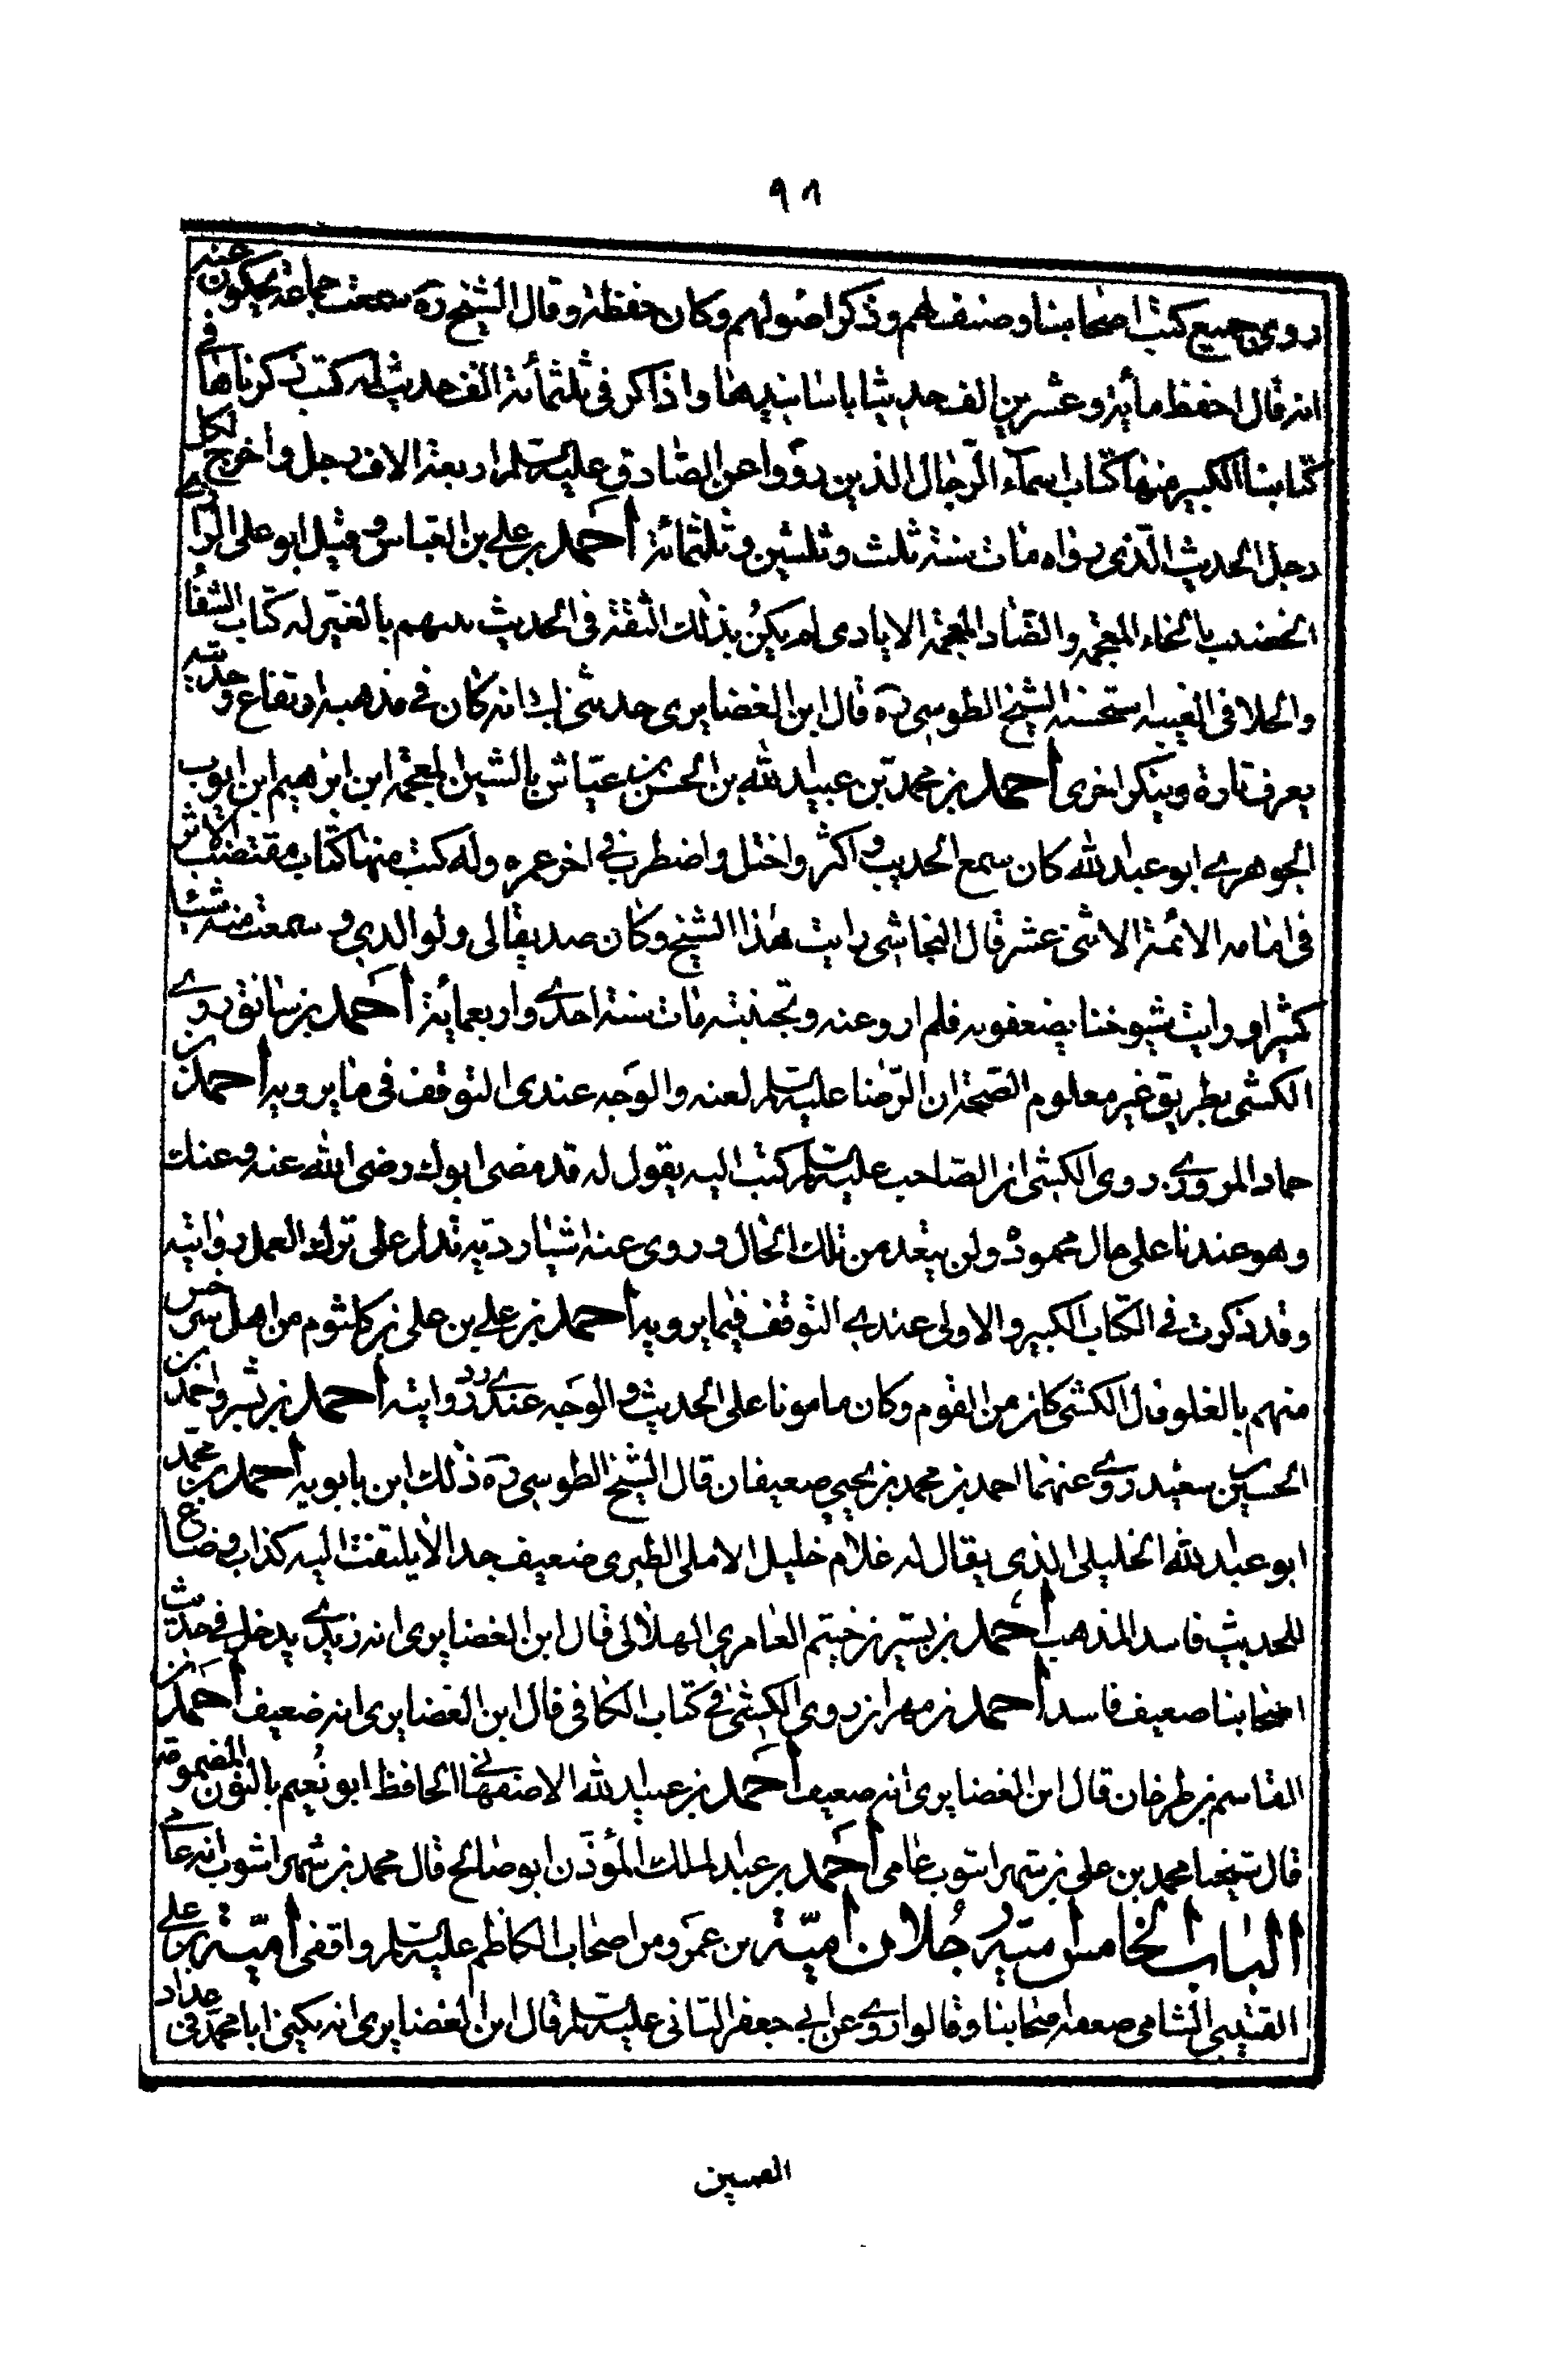 ٩٨
روى جميع كتب اصحابنا وصنف لهم وذكر اصولهم وكان حفظة وقال الشيخ ره سمعت جماعة يحكون عنه
انه قال احفظ مأية وعشرين الف حديثا باسانيدها واذاكر في ثلثمائة الف حديث له كتب ذكرناها في
كتابنا الكبير منها كتاب اسماء الرجال الذين رووا عن الصادق عليه السلم اربعة الاف رجل واخرج لكل
رجل الحديث الذى رواه مات سنة ثلث وثلثين وثلثمائة احمد بن علي بن العباس وقيل ابو على الرازي
الخضيب بالخاء المعجمة والضاد المعجمة الايادى لم يكن بذلك الثقة في الحديث متهم بالغلو له كتاب الشفا
والجلا في الغيبه استحسنه الشيخ الطوسى ره قال ابن الغضايرى حدثني ابي انه كان في مذهبه ارتفاع وحديثه
يعرف تارة وينكر اخرى احمد بن محمد بن عبيد الله بن الحسن بن عياش بالشين المعجمة ابن ابرهيم ابن ايوب
الجوهرى ابو عبد الله كان سمع الحديث واكثر واختل واضطرب في اخر عمره وله كتب منها كتاب مقتضب الاثر
في امامه الائمة الاثنى عشر قال النجاشى رايت هذا الشيخ وكان صديقا لى ولوالدى وسمعت منه شيئا
كثيرا ورايت شيوخنا يضعفونه فلم ارو عنه وتجنبته مات سنة احدى واربعمائة احمد بن سابق روى
الكشى بطريق غير معلوم الصحة ان الرضا عليه السلم لعنه والوجه عندى التوقف في ما يرويه احمد بن
حماد المروزى روى الكشى ان الصاحب عليه السلم كتب اليه يقول له قد مضى ابوك رضى الله عنه وعنك
وهو عندنا على حال محمودة ولن يبعد من تلك الحال وروى عنه اشياء ردية تدل على ترك العمل بروايته
وقد ذكرت في الكتاب الكبير والاولى عندى التوقف فيما يرويه احمد بن علي بن على بن كلثوم من اهل سرخس
متهم بالغلو قال الكشى كان من القوم وكان مامونا على الحديث والوجه عندى رد روايته احمد بن بشير واحمد بن
الحسين بن سعيد روى عنهما احمد بن محمد بن يحيى ضعيفان قال الشيخ الطوسى ره ذلك ابن بابويه احمد بن محمد
ابو عبد الله الخليلى الذى يقال له غلام خليل الاملى الطبرى ضعيف جدا لا يلتفت اليه كذاب وضاع
للحديث فاسد المذهب احمد بن بشير بن خيثم العامرى الهلالى قال ابن الغضايرى انه زيدى يدخل في حديث
اصحابنا ضعيف فاسد احمد بن مهران روى الكشى في كتاب الكافى قال ابن الغضايرى انه ضعيف احمد بن
القاسم بن طرخان قال ابن الغضايرى انه ضعيف احمد بن عبد الله الاصفهانى الحافظ ابو نُعيم بالنون المضمومة
قال شيخنا محمد بن على بن شهر اشوب عامى احمد بن عبد الملك المؤذن ابو صالح قال محمد بن شهر اشوب انه عامى
الباب الخامس امية رجلان امية بن عمرو من اصحاب الكاظم عليه السلم واقفى امية بن على
القيسى الشامى ضعفه اصحابنا وقالوا روى عن ابي جعفر الثانى عليه السلم قال ابن الغضايرى انه يكنى ابا محمد في عداد
القميين